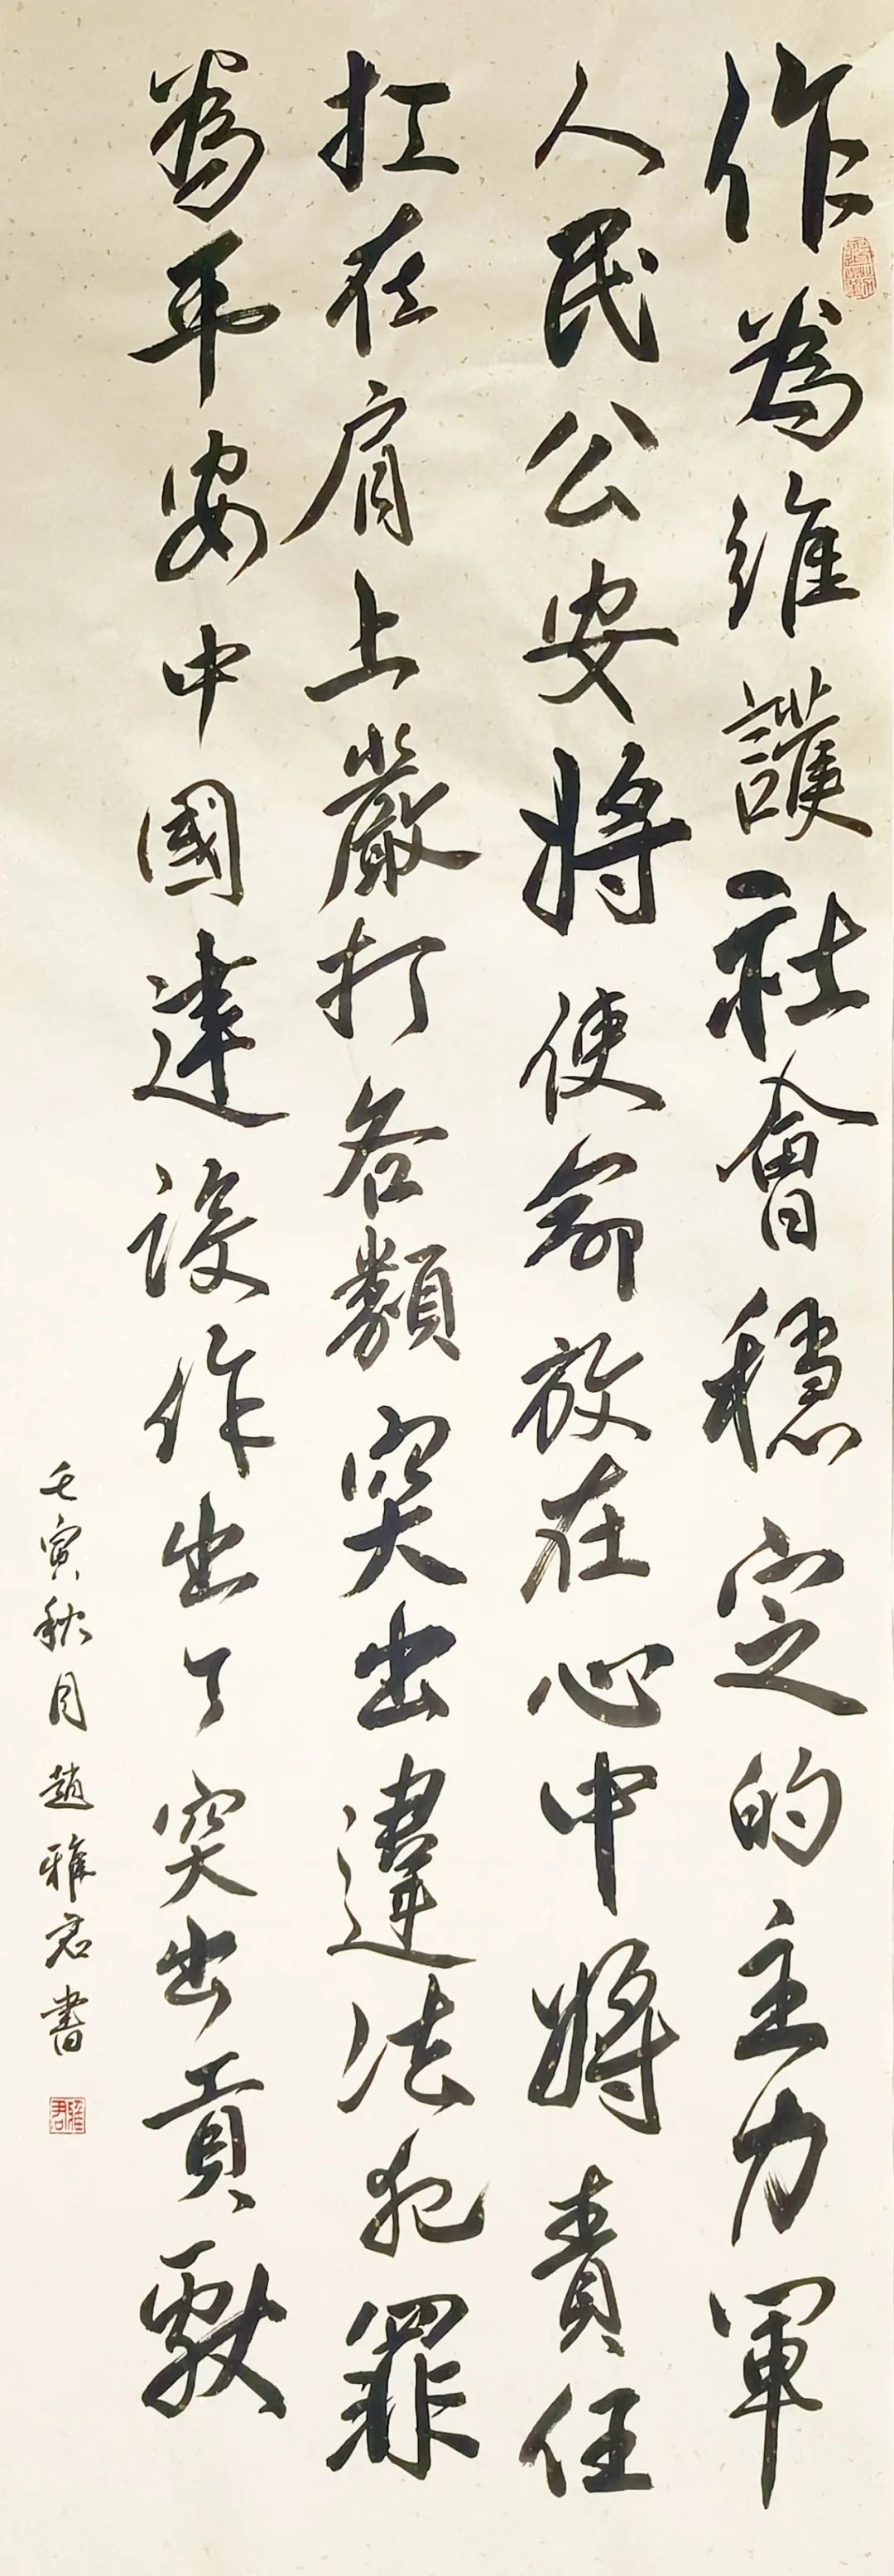 作為維護社會穩定的主力軍
人民公安將使命放在心中將責任
扛在肩上嚴打各類突出違法犯罪
為平安中國建設作出了突出貢獻
壬寅秋月趙雅君書
雅君